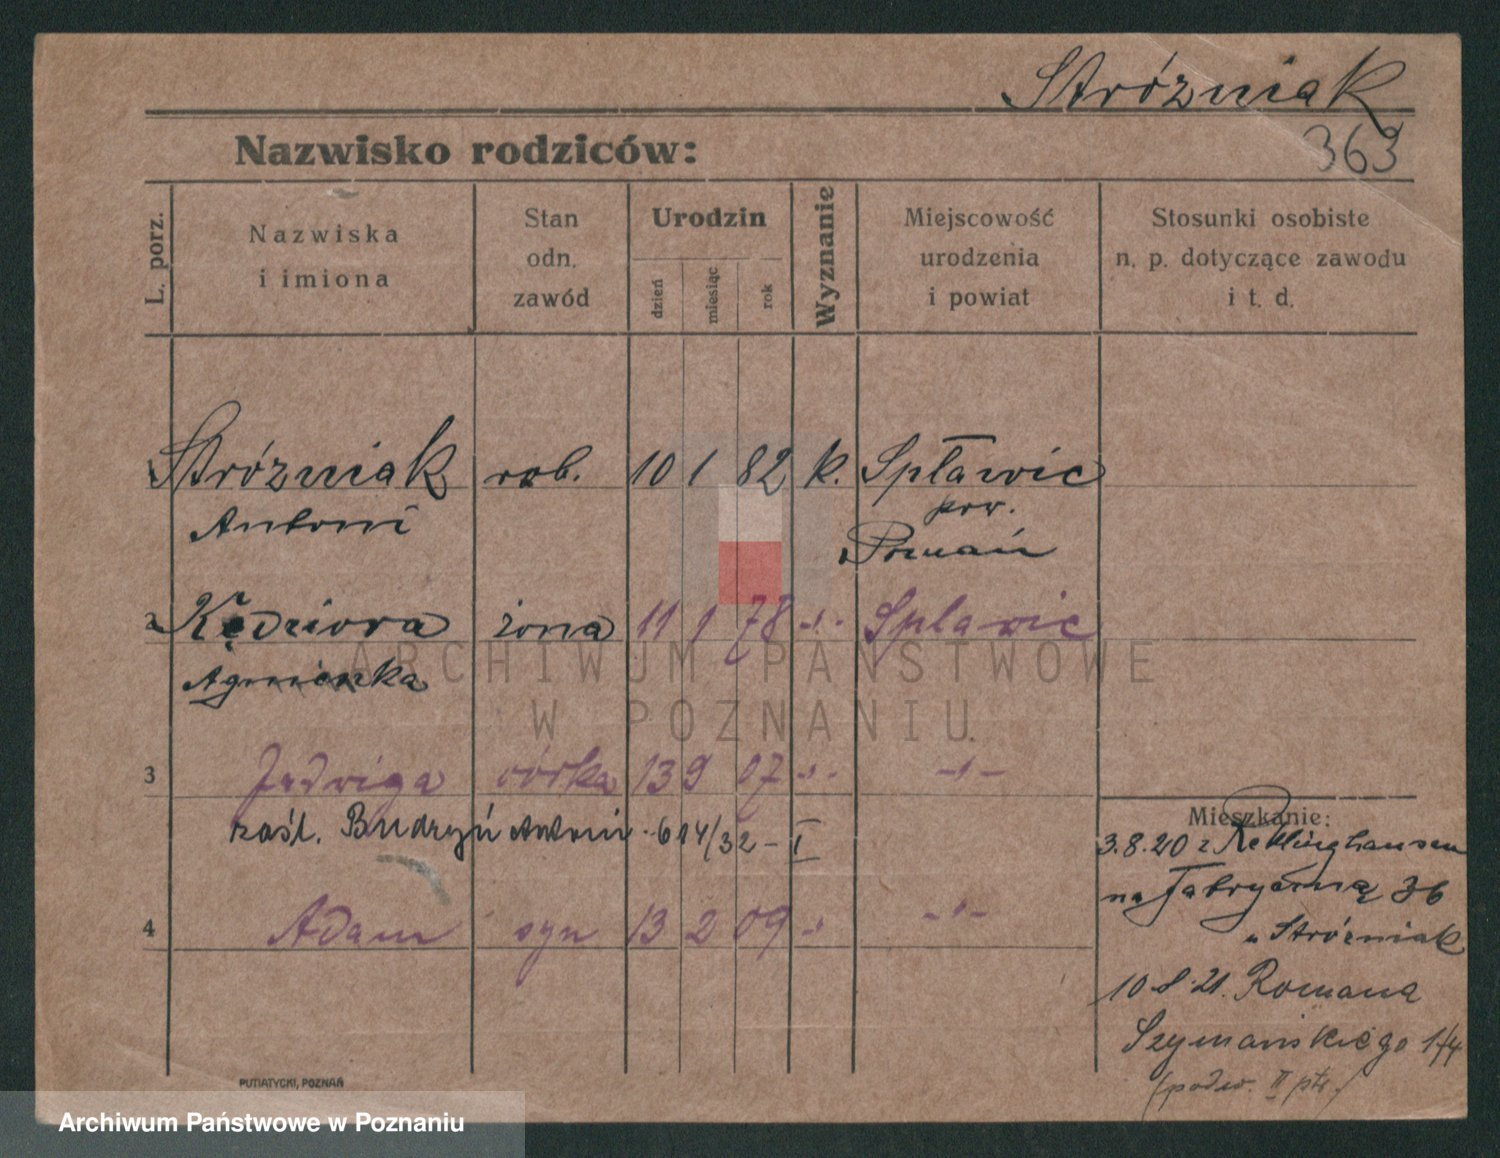 Stróżniak
363
Nazwisko rodziców:
L. porz.
Nazwiska
i imiona
Stan
odn.
zawód
Urodzin
dzień
miesiąc
rok
Wyznanie
Miejscowość
urodzenia
i powiat
Stosunki osobiste
n. p. dotyczące zawodu
i t. d.
1 Stróżniak rob. 10 1 82 k. Spławie
Antoni pow.
Poznań
2 Kędziora żona 11 1 78 -"- Splawie
Agnieszka
ARCHIWUM PAŃSTWOWE
W POZNANIU
3 Jadwiga córka 13 9 07 -"- -"-
zaśl. Budzyń Antoni 614/32 - I
4 Adam syn 13 2 09 -"- -"-
Mieszkanie:
3.8.20 z Recklinghausen
na Fabryczną 36
u Stróżniak
10.8.21. Romana
Szymańskiego 1/4
(podw. II ptr.)
PUTIATYCKI, POZNAŃ
Archiwum Państwowe w Poznaniu